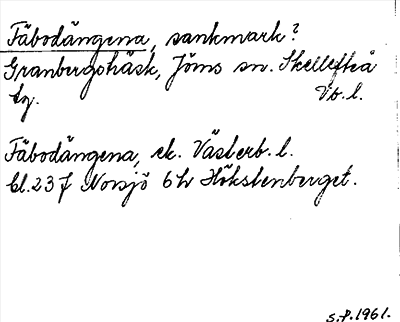 Fäbodängena, sankmark?
Granbergsträsk, Jörns sn. Skellefteå
tg. Vb. l.
Fäbodängena, ek. Västerb. l.
bl. 23 J Norsjö 6h Högstenberget.
S.P. 1961.